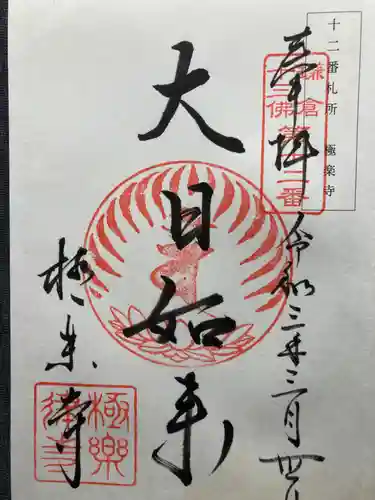 十二番札所　極楽寺
奉拝
鎌倉
十三佛第十二番
大日如来
令和三年三月卅
極楽寺
極樂
律寺